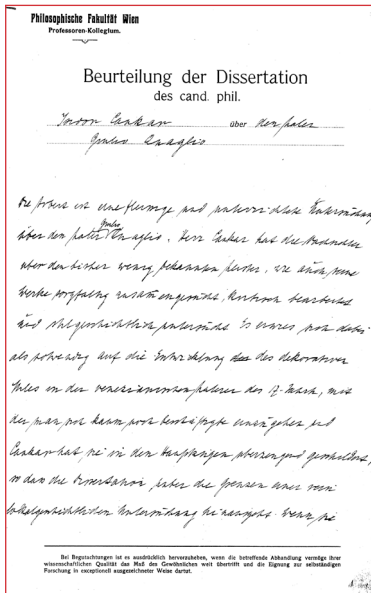 Philosophische Fakultät Wien
Professoren-Kollegium.
Beurteilung der Dissertation
des cand. phil.
Izidor Cankar über den Maler
Giulio Quaglio
Die Arbeit ist eine fleissige und unterrichtete Untersuchung
Giulio
über den Maler Quaglio. Herr Cankar hat die Nachrichten
über den bisher wenig bekannten Meister, wie auch seine
Werke sorgfältig zusammengesucht, kritisch bearbeitet
und stilgeschichtlich untersucht. Es erwies sich dabei
als notwendig auf die Entwicklung des dekorativen
Stiles in der venezianischen Malerei des 17. Jahrh., mit
der man sich kaum noch beschäftigte einzugehen und
Cankar hat sie in den Hauptzügen überzeugend geschildert,
so dass die Dissertation über die Grenzen einer rein
lokalgeschichtlichen Untersuchung hinausgeht. Wenn sie
Bei Begutachtungen ist es ausdrücklich hervorzuheben, wenn die betreffende Abhandlung vermöge ihrer
wissenschaftlichen Qualität das Maß des Gewöhnlichen weit übertrifft und die Eignung zur selbständigen
Forschung in exceptionell ausgezeichneter Weise dartut.